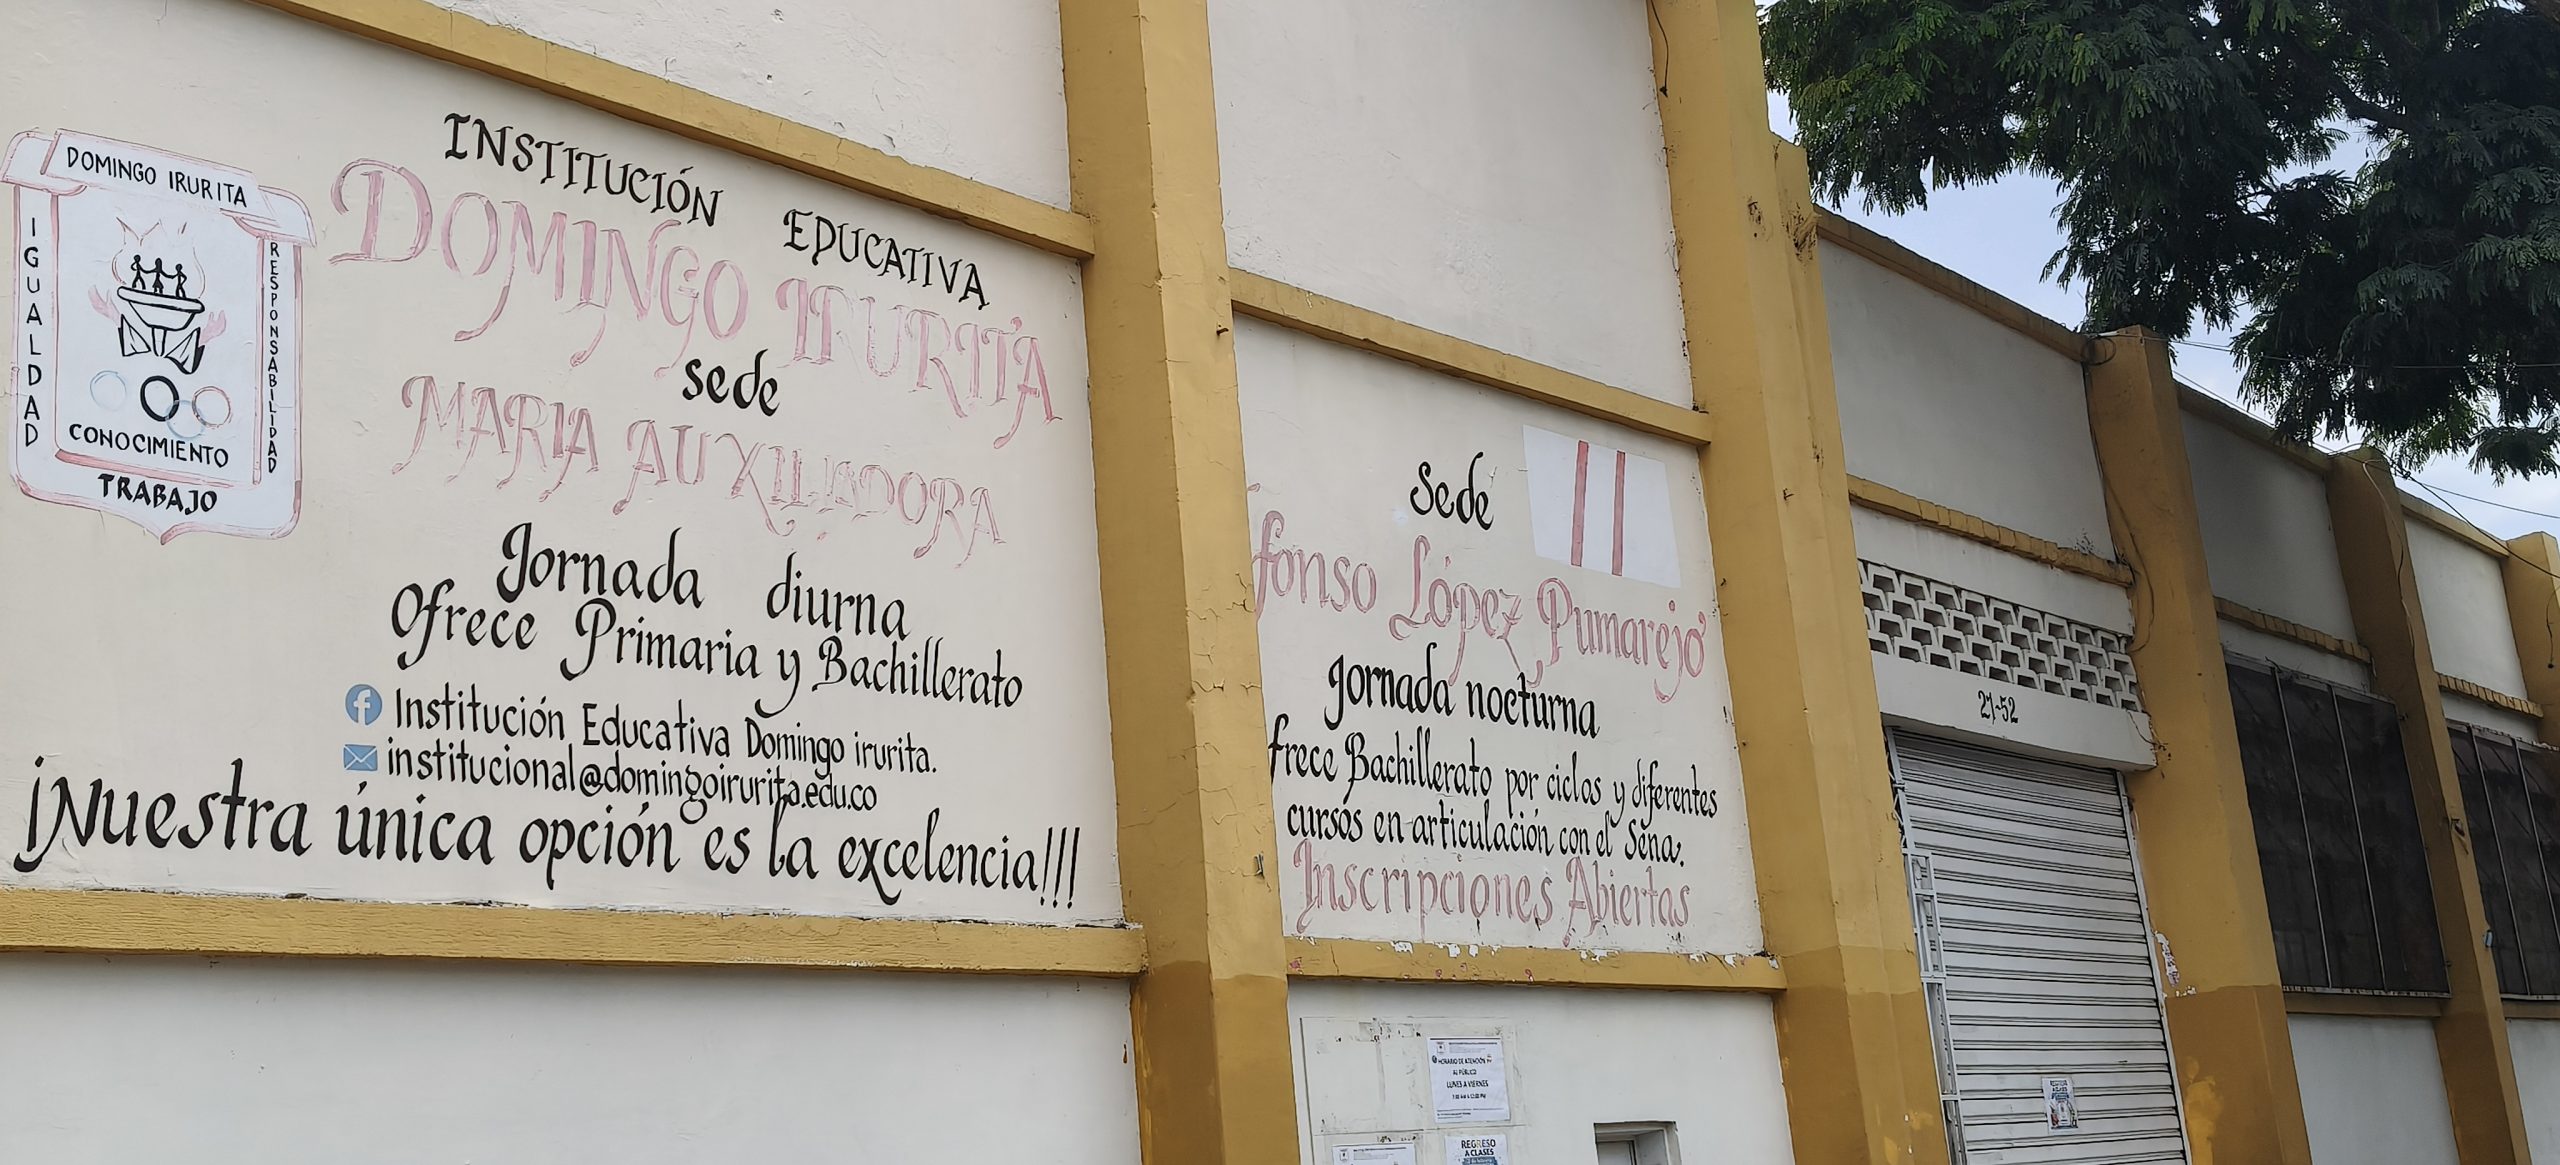 DOMINGO IRURITA
IGUALDAD
RESPONSABILIDAD
CONOCIMIENTO
TRABAJO
INSTITUCIÓN EDUCATIVA
DOMINGO IRURITA
sede
MARIA AUXILIADORA
Jornada diurna
Ofrece Primaria y Bachillerato
Institución Educativa Domingo irurita.
institucional@domingoirurita.edu.co
¡Nuestra única opción es la excelencia!!!
Sede
fonso López Pumarejo
Jornada nocturna
frece Bachillerato por ciclos y diferentes
cursos en articulación con el Sena.
Inscripciones Abiertas
21-52
HORARIO DE ATENCIÓN
AL PÚBLICO
LUNES A VIERNES
REGRESO
A CLASES